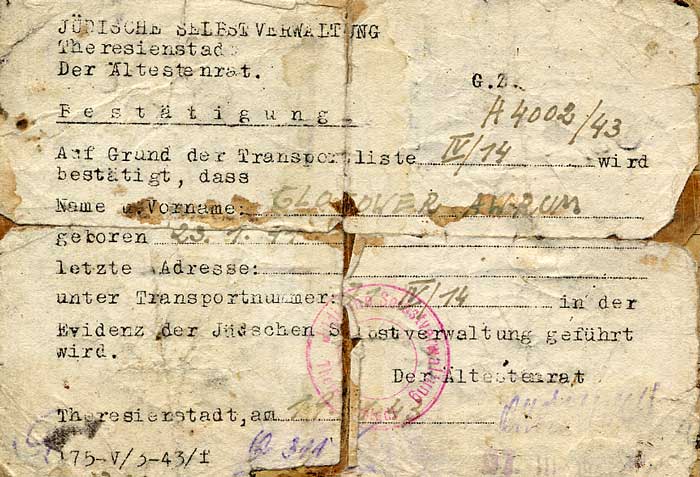 JÜDISCHE SELBSTVERWALTUNG
Theresienstadt
Der Ältestenrat.
G.Z.
A 4002/43
Bestätigung
Auf Grund der Transportliste IV/14 wird
bestätigt, dass
Name u.Vorname: GLOTOVER
geboren 23. 1.
letzte Adresse:
unter Transportnummer: IV/14 in der
Evidenz der Jüdschen Selbstverwaltung geführt
wird.
Der Ältestenrat
Theresierstadt, am 43
175-V/5-43/f
Selbstverwaltung